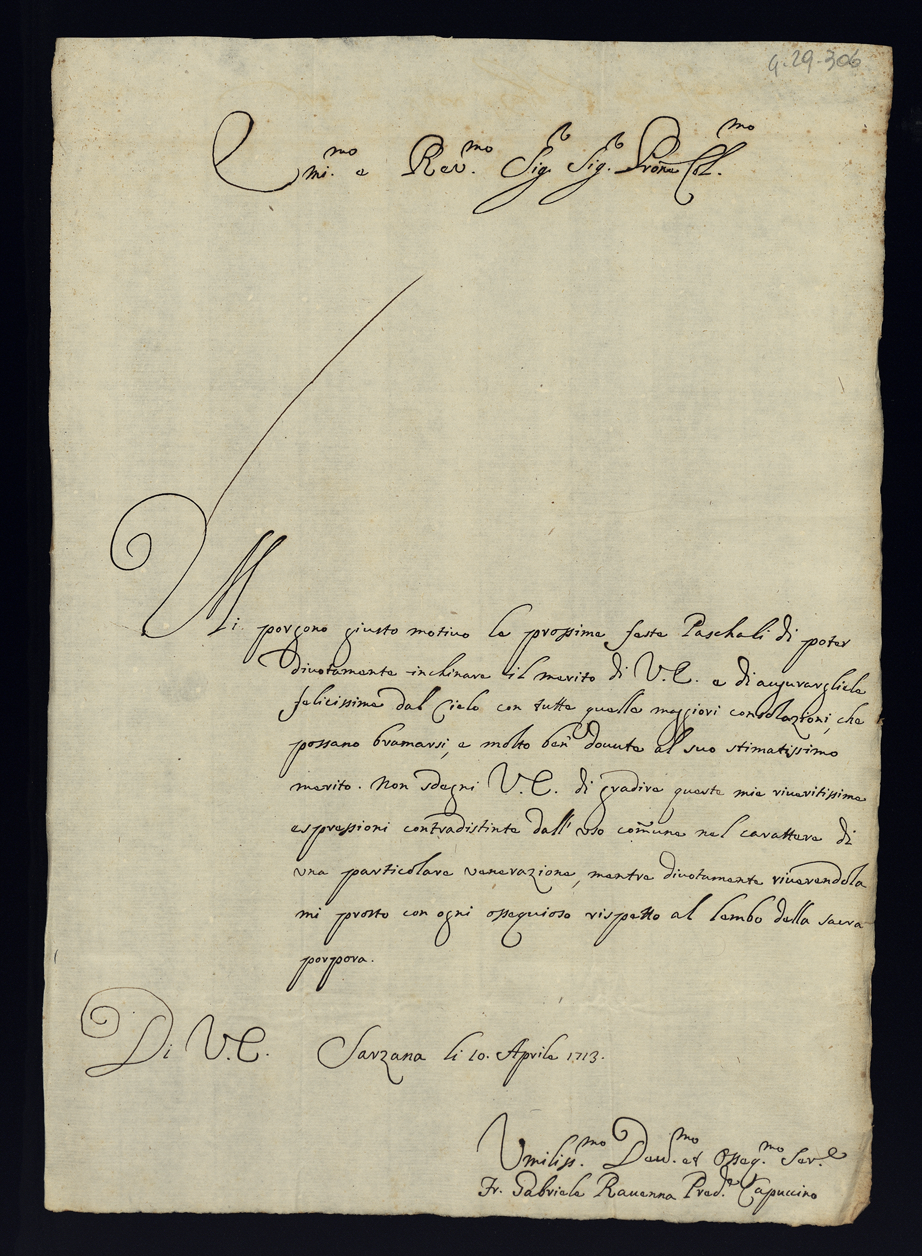 G.29-306
Emi.mo e Rev.mo Sig.r Sig.r Prōne Col.mo
Mi porgono giusto motivo le prossime feste Paschali di poter
divotamente inchinare il merito di V.E. e di augurargliele
felicissime dal Cielo con tutte quelle maggiori consolazioni, che
possano bramarsi, e molto ben dovute al suo stimatissimo
merito. Non sdegni V.E. di gradire queste mie riveritissime
espressioni contradistinte dall'uso com̄une nel carattere di
una particolare venerazione, mentre divotamente riverendola
mi prosto con ogni ossequioso rispetto al lembo della sacra
porpora.
Di V.E. Sarzana li 10. Aprile 1713.
Umiliss.mo Dev.mo et Osseq.mo Ser.e
Fr. Gabriele Ravenna Pred.re Capuccino